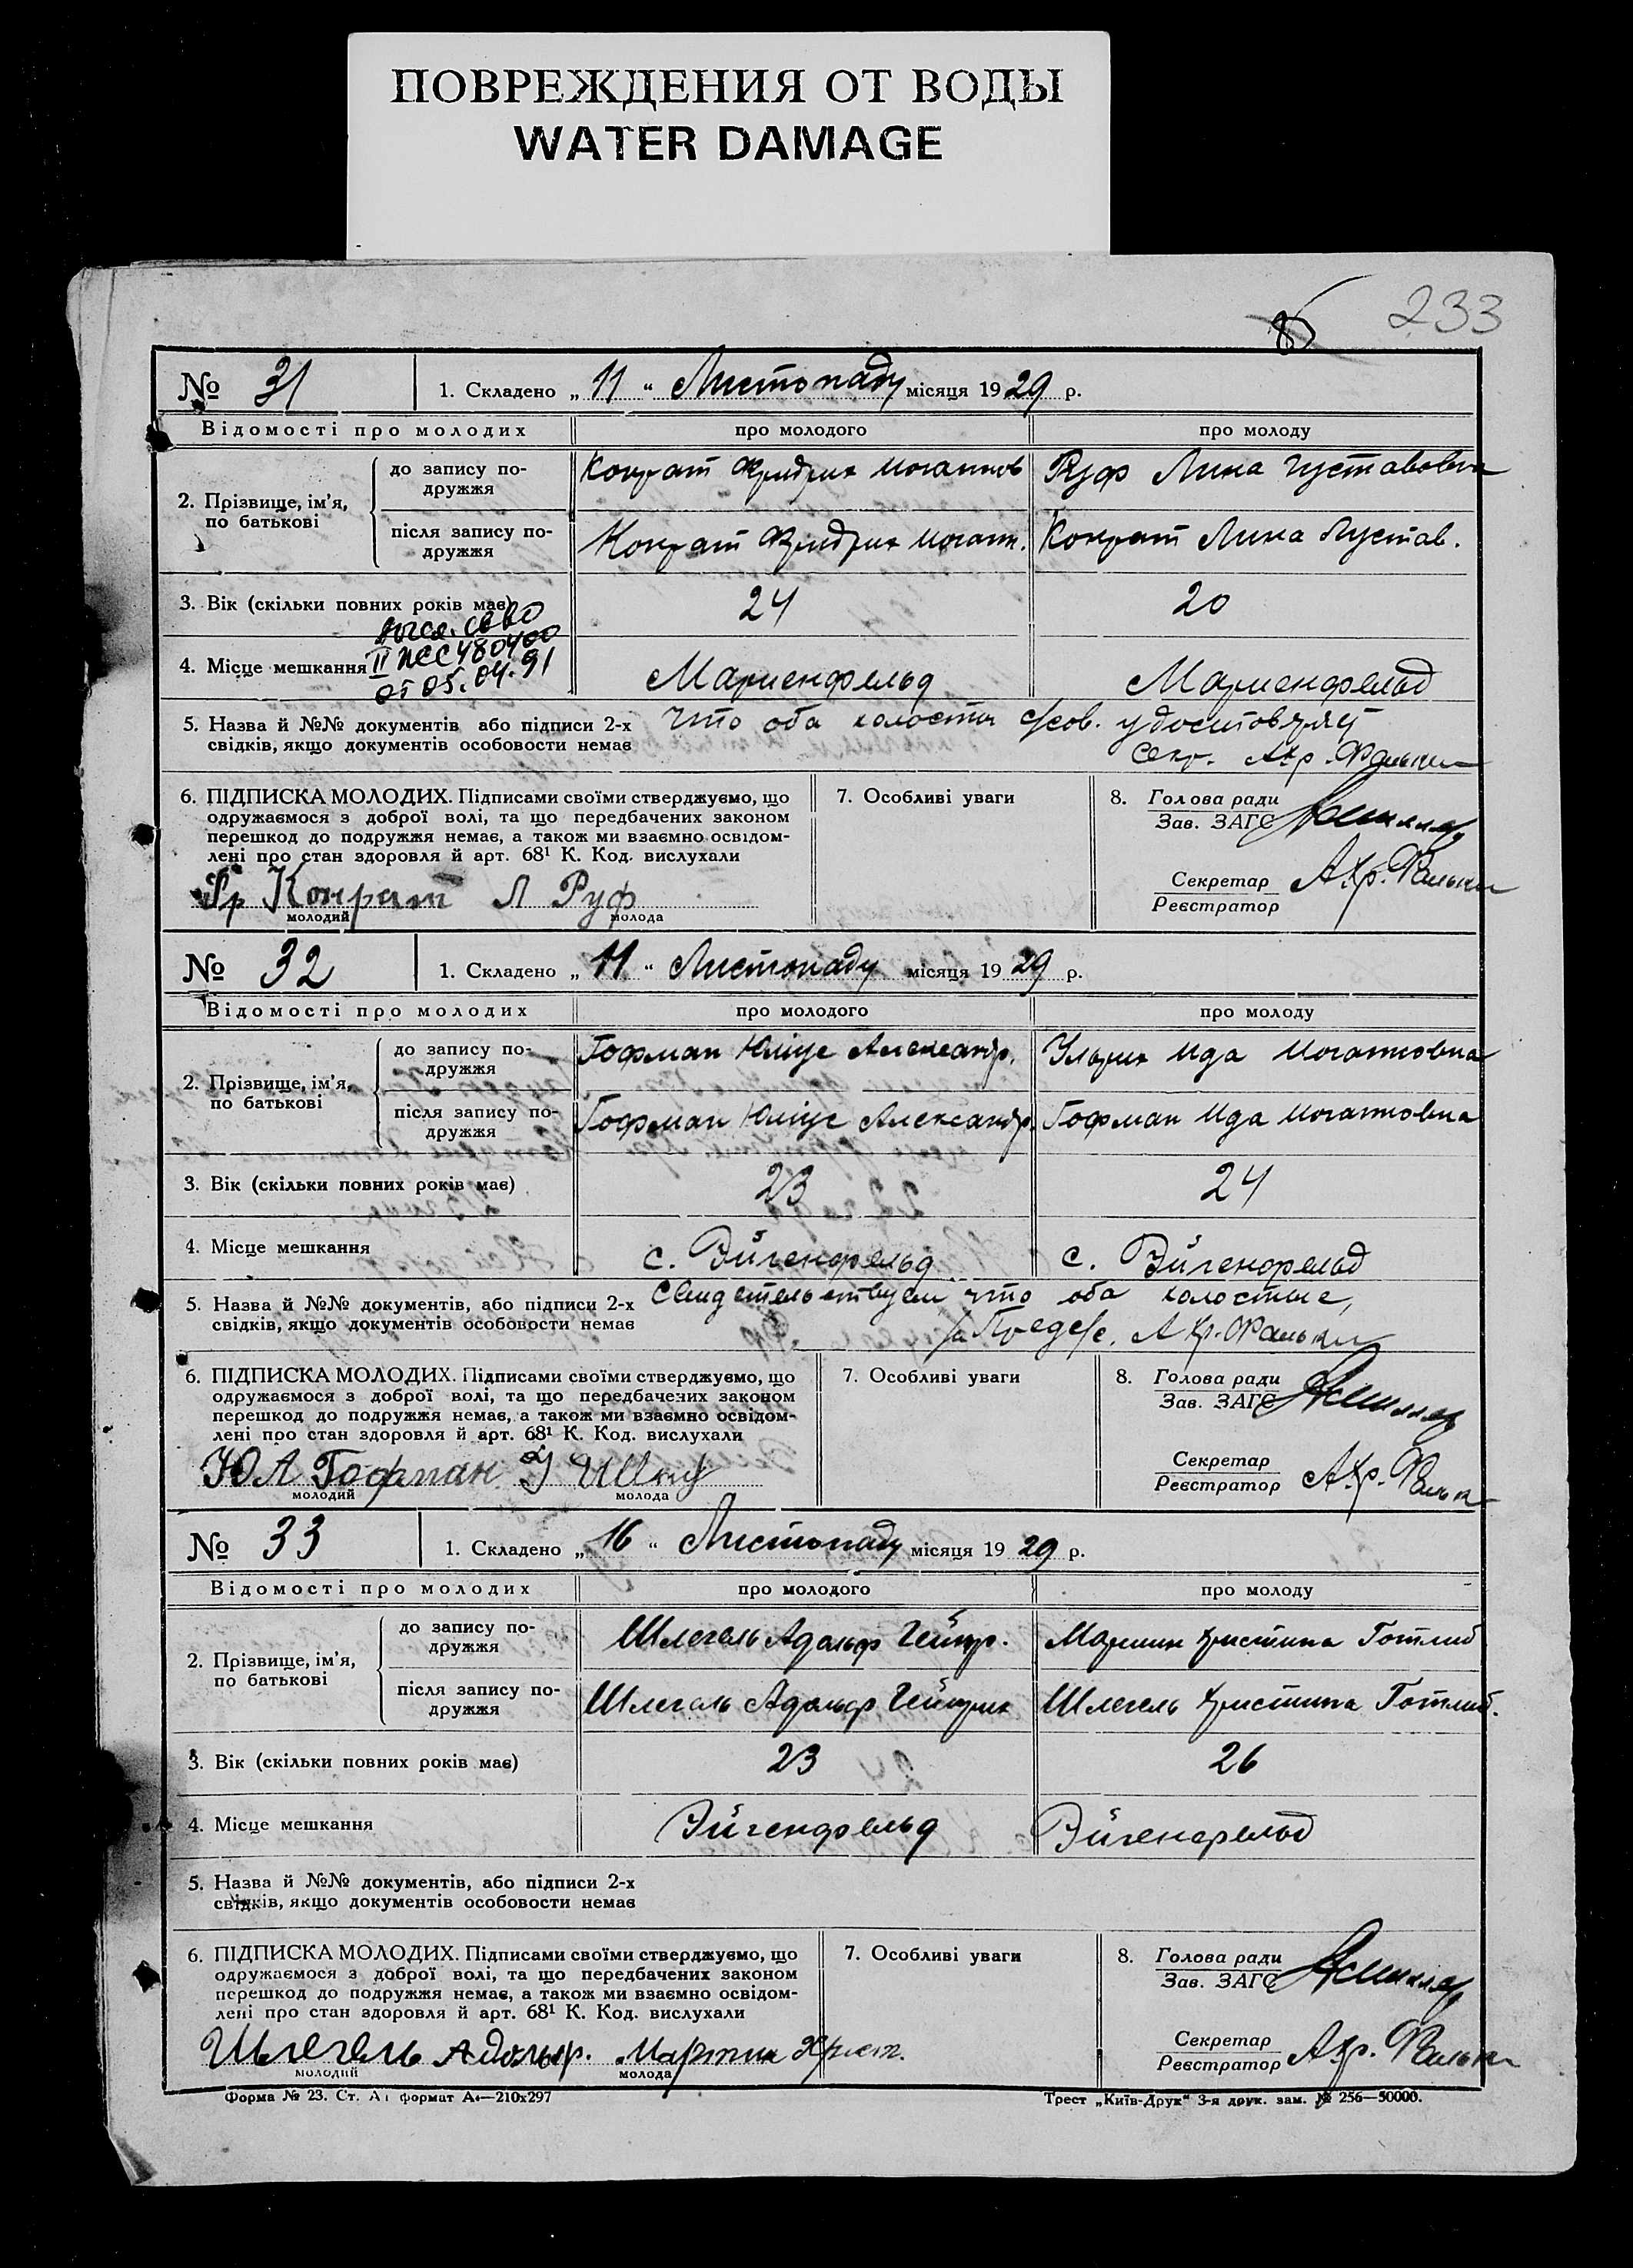 ПОВРЕЖДЕНИЯ ОТ ВОДЫ
WATER DAMAGE
233
№ 31 1. Складено „ 11 “ Листопаду місяця 1929 р.
Відомості про молодих про молодого про молоду
2. Прізвище, ім’я, по батькові
до запису подружжя Конрат Фридрих Иоганнов Руф Лина Густавовна
після запису подружжя Конрат Фридрих Иоганн. Конрат Лина Густав.
3. Вік (скільки повних років має) 24 20
4. Місце мешкання Мариенфельд Мариенфельд
II ПСС 480400
от 05.04.91
5. Назва й №№ документів або підписи 2-х Что оба холосты с/сов. удостоверяет
свідків, якщо документів особовости немає Секр. А.Кр. Фальк
6. ПІДПИСКА МОЛОДИХ. Підписами своїми стверджуємо, що 7. Особливі уваги 8. Голова ради
одружаємося з доброї волі, та що передбачених законом Зав. ЗАГС
перешкод до подружжя немає, а також ми взаємно освідом-
лені про стан здоровля й арт. 68¹ К. Код. вислухали
Фр Конрат Л Руф Секретар А.Кр. Фальк
молодий молода Реєстратор
№ 32 1. Складено „ 11 “ Листопаду місяця 1929 р.
Відомості про молодих про молодого про молоду
2. Прізвище, ім’я, по батькові
до запису подружжя Гофман Юліус Александр. Ульрих Ида Иоганновна
після запису подружжя Гофман Юліус Александр. Гофман Ида Иоганновна
3. Вік (скільки повних років має) 23 24
4. Місце мешкання с. Эйгенфельд с. Эйгенфельд
5. Назва й №№ документів, або підписи 2-х Свидетельствуем что оба холостые,
свідків, якщо документів особовости немає А Кр. Фальк
6. ПІДПИСКА МОЛОДИХ. Підписами своїми стверджуємо, що 7. Особливі уваги 8. Голова ради
одружаємося з доброї волі, та що передбачених законом Зав. ЗАГС
перешкод до подружжя немає, а також ми взаємно освідом-
лені про стан здоровля й арт. 68¹ К. Код. вислухали
ЮА Гофман Секретар А.Кр. Фальк
молодий молода Реєстратор
№ 33 1. Складено „ 16 “ Листопаду місяця 1929 р.
Відомості про молодих про молодого про молоду
2. Прізвище, ім’я, по батькові
до запису подружжя Шлегель Адольф Гейнр. Мартин Христина Готлиб
після запису подружжя Шлегель Адольф Гейнрих Шлегель Христина Готлиб.
3. Вік (скільки повних років має) 23 26
4. Місце мешкання Эйгенфельд Эйгенфельд
5. Назва й №№ документів, або підписи 2-х
свідків, якщо документів особовости немає
6. ПІДПИСКА МОЛОДИХ. Підписами своїми стверджуємо, що 7. Особливі уваги 8. Голова ради
одружаємося з доброї волі, та що передбачених законом Зав. ЗАГС
перешкод до подружжя немає, а також ми взаємно освідом-
лені про стан здоровля й арт. 68¹ К. Код. вислухали
Шлегель Адольф. Мартин Христ. Секретар А.Кр. Фальк
молодий молода Реєстратор
Форма № 23. Ст. А1 формат А4—210х297 Трест „Київ-Друк“ 3-я друк. зам. № 256—50000.